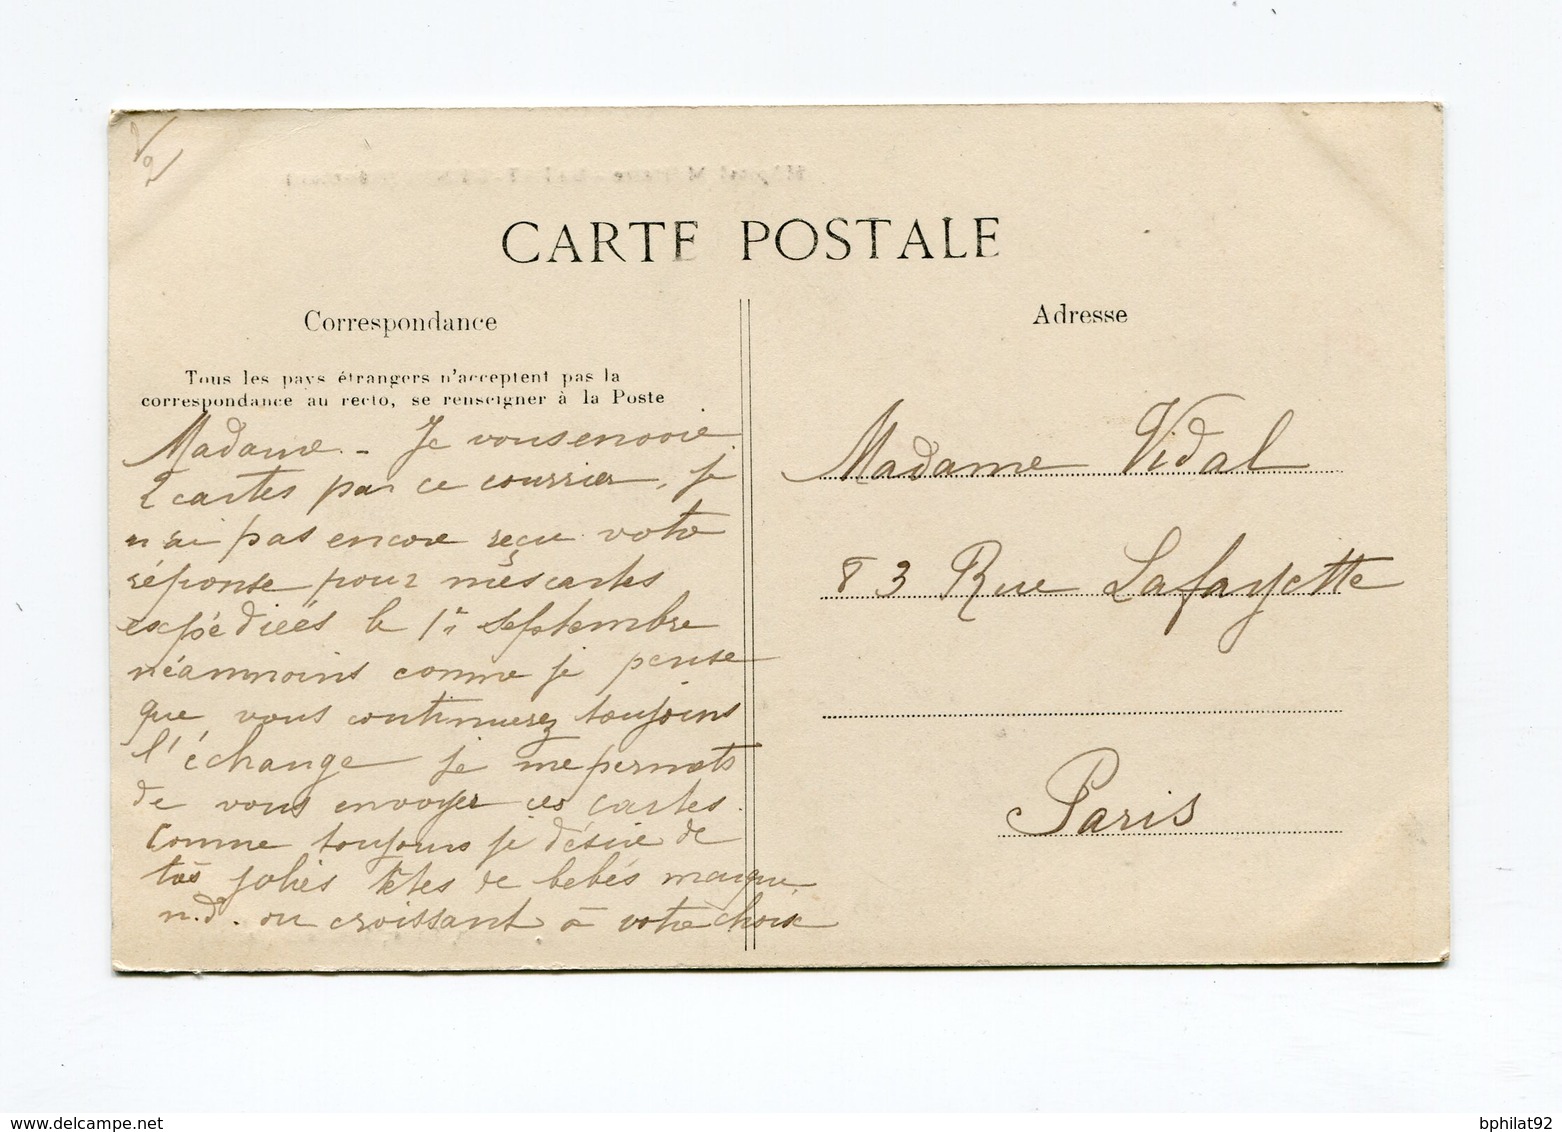 CARTE POSTALE
Correspondance
Tous les pays étrangers n'acceptent pas la
correspondance au recto, se renseigner à la Poste
Madame - Je vous envoie
2 cartes par ce courrier, je
n'ai pas encore reçu votre
réponse pour mes cartes
expédiées le 1er septembre
néanmoins comme je pense
que vous continuerez toujours
l'échange je me permets
de vous envoyer ces cartes.
Comme toujours je désire de
très jolies têtes de bébés marque
n.d. ou croissant à votre choix
Adresse
Madame Vidal
83 Rue Lafayette
Paris
bphilat92